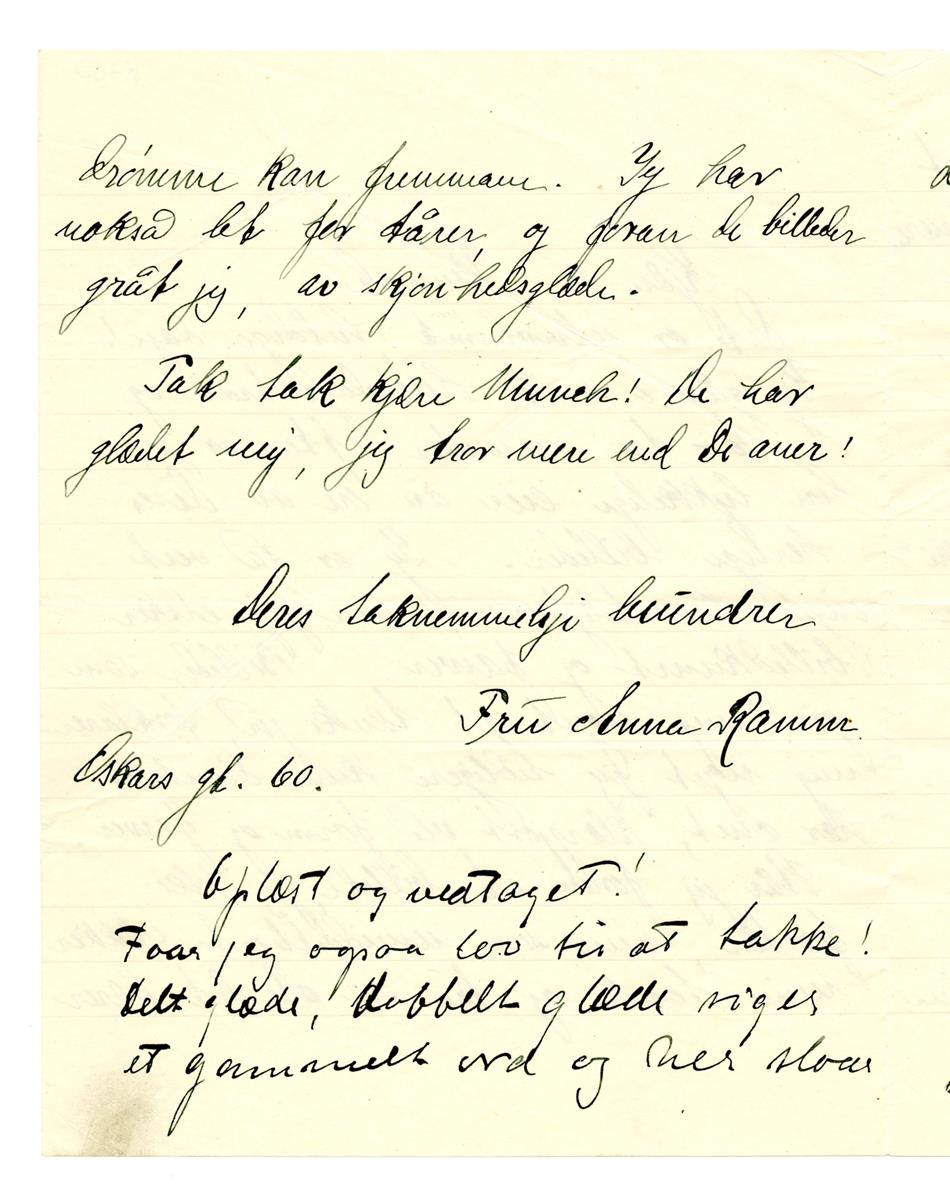 drømme kan fremmane. Jeg har
nokså let for tårer, og foran de billeder
gråt jeg, av skjønhedsglæde.
Tak tak kjære Munch! De har
glædet mig, jeg tror mere end De aner!
Deres taknemmelige beundrer
Fru Anna Ramm.
Oskars gt. 60.
Oplæst og vedtaget!
Faar jeg ogsaa lov til at takke!
Delt glæde, dobbelt glæde siges
et gammelt ord og her slaar